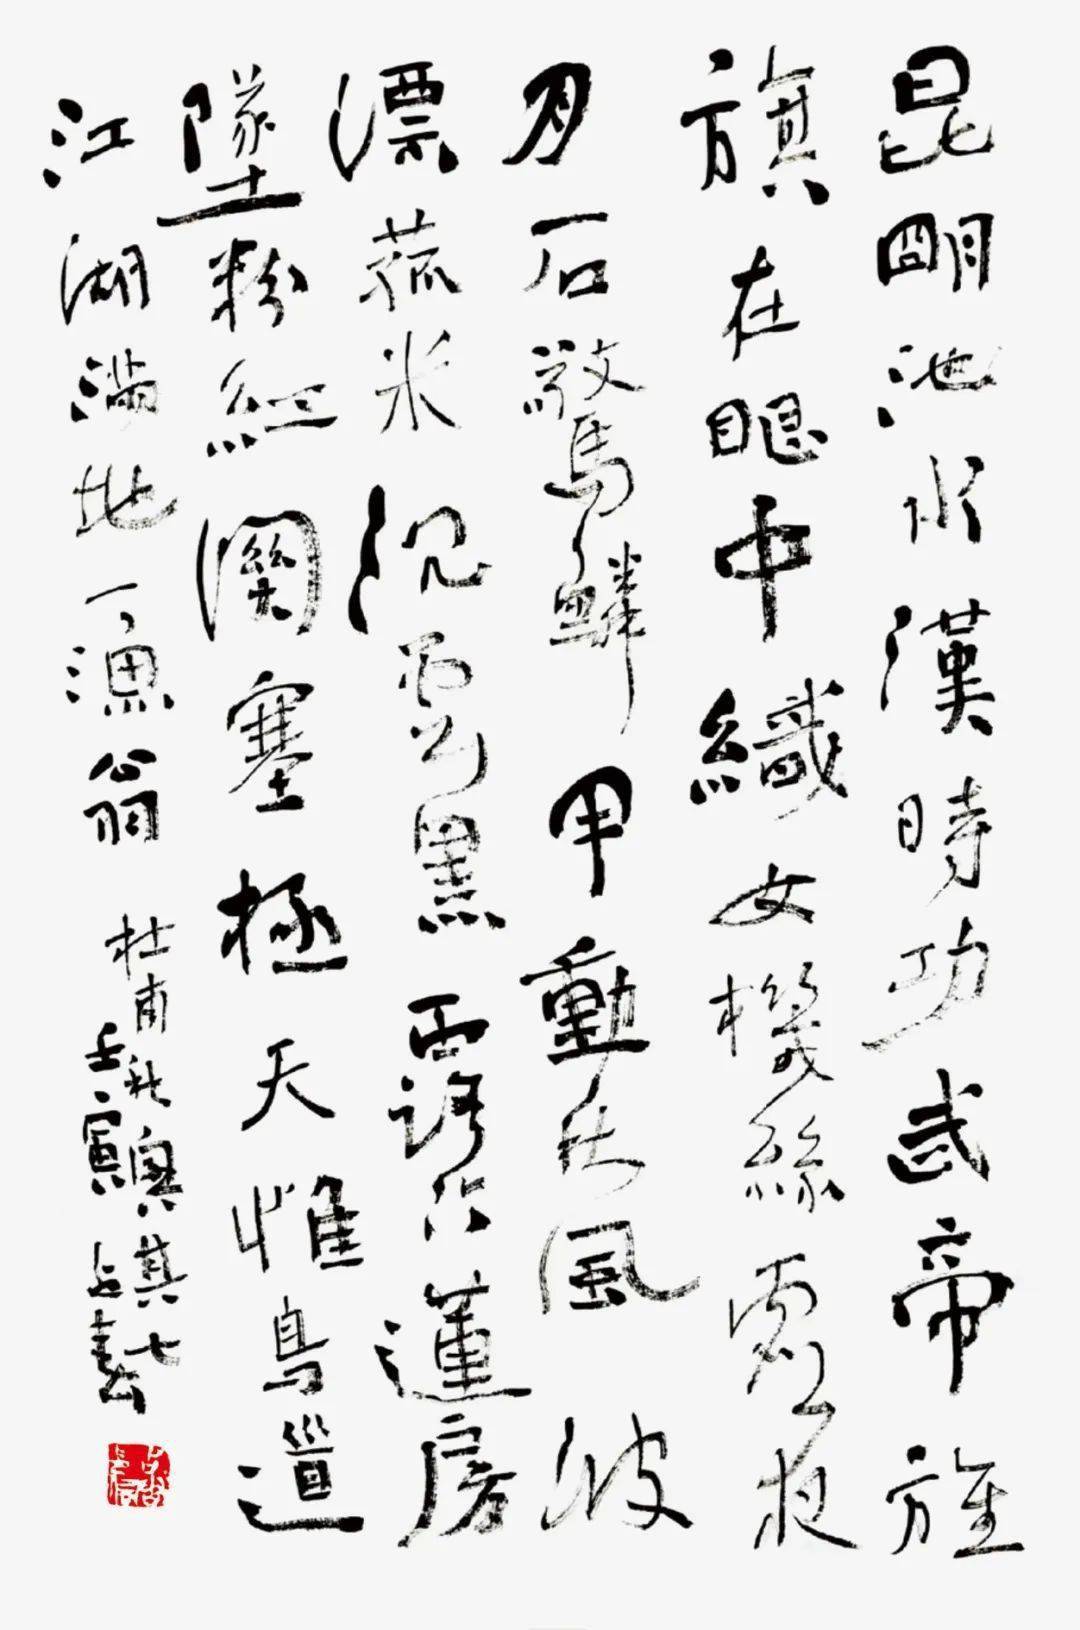 昆明池水漢時功武帝旌
旗在眼中織女機絲虛夜
月石驚鱗甲動秋風波
漂菰米沉雲黑露冷蓮房
墜粉紅關塞極天惟鳥道
江湖滿地一漁翁 杜甫秋興其七
壬寅